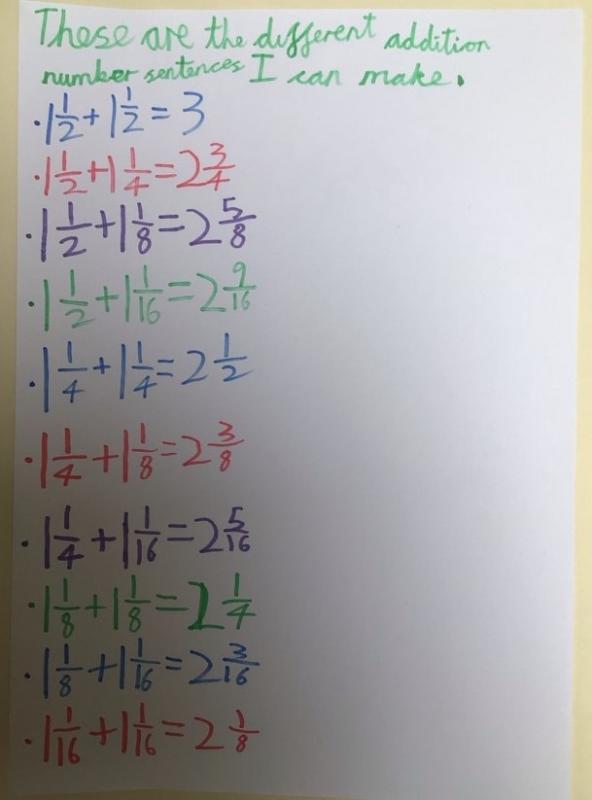 These are the different addition
number sentences I can make.
·1 1/2 + 1 1/2 = 3
·1 1/2 + 1 1/4 = 2 3/4
·1 1/2 + 1 1/8 = 2 5/8
·1 1/2 + 1 1/16 = 2 9/16
·1 1/4 + 1 1/4 = 2 1/2
·1 1/4 + 1 1/8 = 2 3/8
·1 1/4 + 1 1/16 = 2 5/16
·1 1/8 + 1 1/8 = 2 1/4
·1 1/8 + 1 1/16 = 2 3/16
·1 1/16 + 1 1/16 = 2 1/8